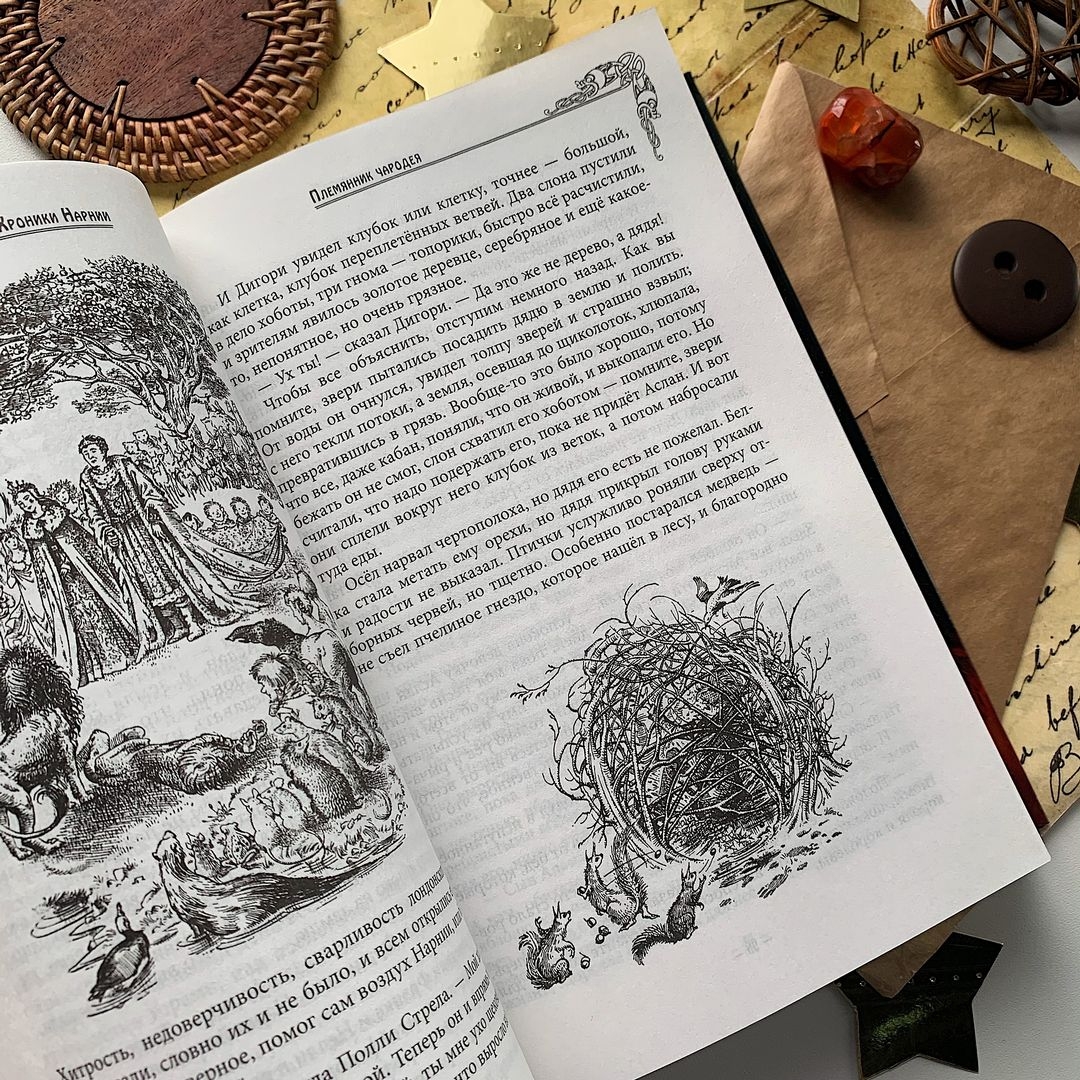 Хроники Нарнии
Хитрость, недоверчивость, сварливость лондонско
али, словно их и не было, и всем открылис
верное, помог сам воздух Нарнии,
да Полли Стрела. — Мо
ой. Теперь он и впра
, ты мне ухо щек
что выросло
Племянник чародея
И Дигори увидел клубок или клетку, точнее — большой,
как клетка, клубок переплетённых ветвей. Два слона пустили
в дело хоботы, три гнома — топорики, быстро всё расчистили,
и зрителям явилось золотое деревце, серебряное и ещё какое-
то, непонятное, но очень грязное.
— Ух ты! — сказал Дигори. — Да это же не дерево, а дядя!
Чтобы все объяснить, отступим немного назад. Как вы
помните, звери пытались посадить дядю в землю и полить.
От воды он очнулся, увидел толпу зверей и страшно взвыл;
с него текли потоки, а земля, осевшая до щиколоток, хлюпала,
превратившись в грязь. Вообще-то это было хорошо, потому
что все, даже кабан, поняли, что он живой, и выкопали его. Но
бежать он не смог, слон схватил его хоботом — помните, звери
считали, что надо подержать его, пока не придёт Аслан. И вот
они сплели вокруг него клубок из веток, а потом набросали
туда еды.
Осёл нарвал чертополоха, но дядя его есть не пожелал. Бел-
ка стала метать ему орехи, но дядя прикрыл голову руками
и радости не выказал. Птички услужливо роняли сверху от-
борных червей, но тщетно. Особенно постарался медведь —
не съел пчелиное гнездо, которое нашёл в лесу, и благородно
hope